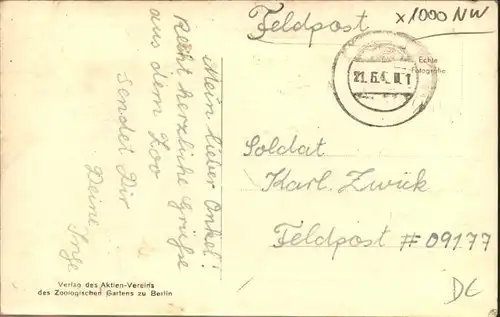 Mein lieber Onkel!
Recht herzliche Grüße
aus dem Zoo
sendet Dir
Deine
Inge
Verlag des Aktien-Vereins
des Zoologischen Gartens zu Berlin
Feldpost
x1000 NW
Echte
Fotografie
21.6.4
Soldat
Karl Zwick
Feldpost # 09177
DC